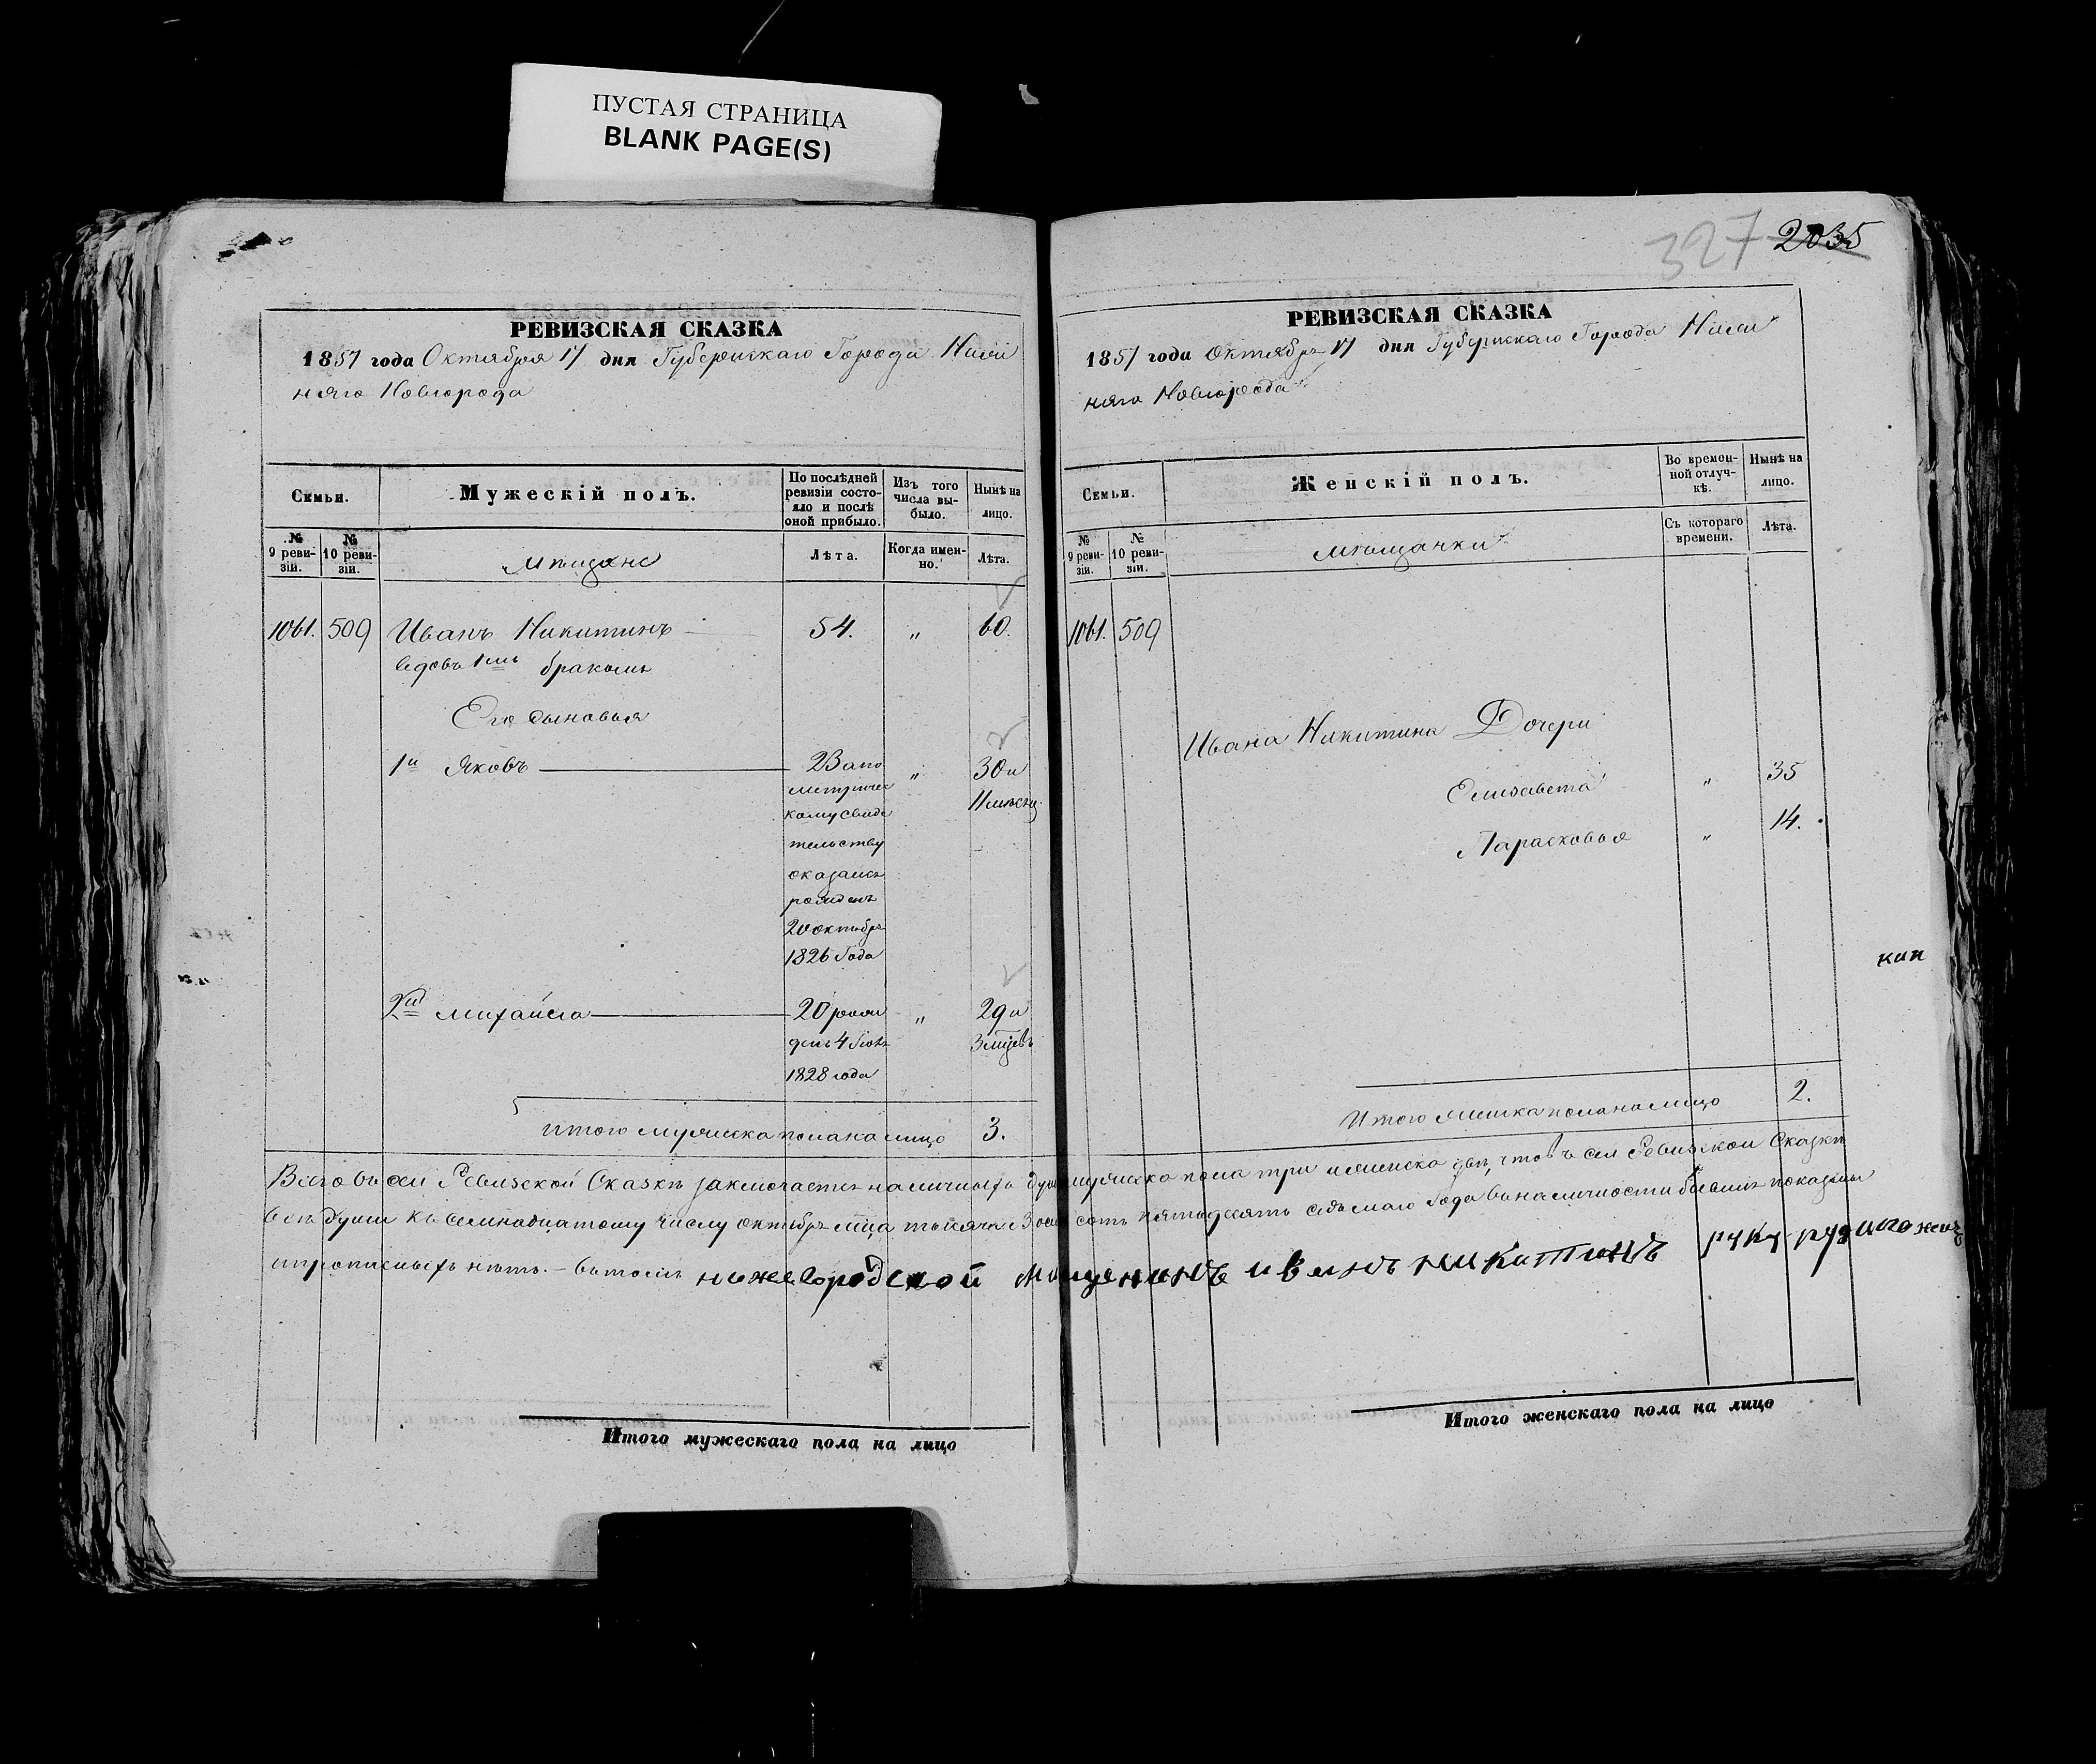 ПУСТАЯ СТРАНИЦА
BLANK PAGE(S)
РЕВИЗСКАЯ СКАЗКА
1857 года Октября 17 дня Губернскаго Города Ниж
няго Новгорода
Семьи.
Мужескій полъ.
По послѣдней ревизіи состояло и послѣ оной прибыло.
Изъ того числа выбыло.
Нынѣ на лицо.
№ 9 ревизіи.
№ 10 ревизіи.
Мѣщане
Лѣта.
Когда именно.
Лѣта.
1061. 509 Иванъ Никитинъ 54. " 60.
вдовъ 1мъ бракомъ
Его сыновья
1й Яковъ 23 а по " 30 и
метричес 11 месяц.
кому свиде
тельству
оказался
рожденъ
20 октября
1826 Года
2й Михайла 20 рож " 29 и
денъ 4 Іюля 3 мцевъ
1828 года
Итого мужеска пола на лицо 3.
Итого мужескаго пола на лицо
327 2035
РЕВИЗСКАЯ СКАЗКА
1857 года Октября 17 дня Губернскаго Города Ниж
няго Новгорода
Семьи.
Женскій полъ.
Во временной отлучкѣ.
Нынѣ на лицо.
№ 9 ревизіи.
№ 10 ревизіи.
Мѣщанки
Съ котораго времени.
Лѣта.
1061. 509
Ивана Никитина Дочери
Елизавета " 35
Парасковья " 14.
Итого женска пола на лицо 2.
Всего въ сей Ревизской Сказкѣ заключается наличныхъ душъ мужеска пола три и женска двѣ, что въ сей Ревизской Сказкѣ
всѣ души къ семнадцатому числу октября мца тысяча восемь сотъ пятьдесятъ седьмаго Года въ наличности бывшіе показаны
и прописныхъ нѣтъ. – въ томъ нижегородской мещенинъ иванъ никитинъ руку
Итого женскаго пола на лицо